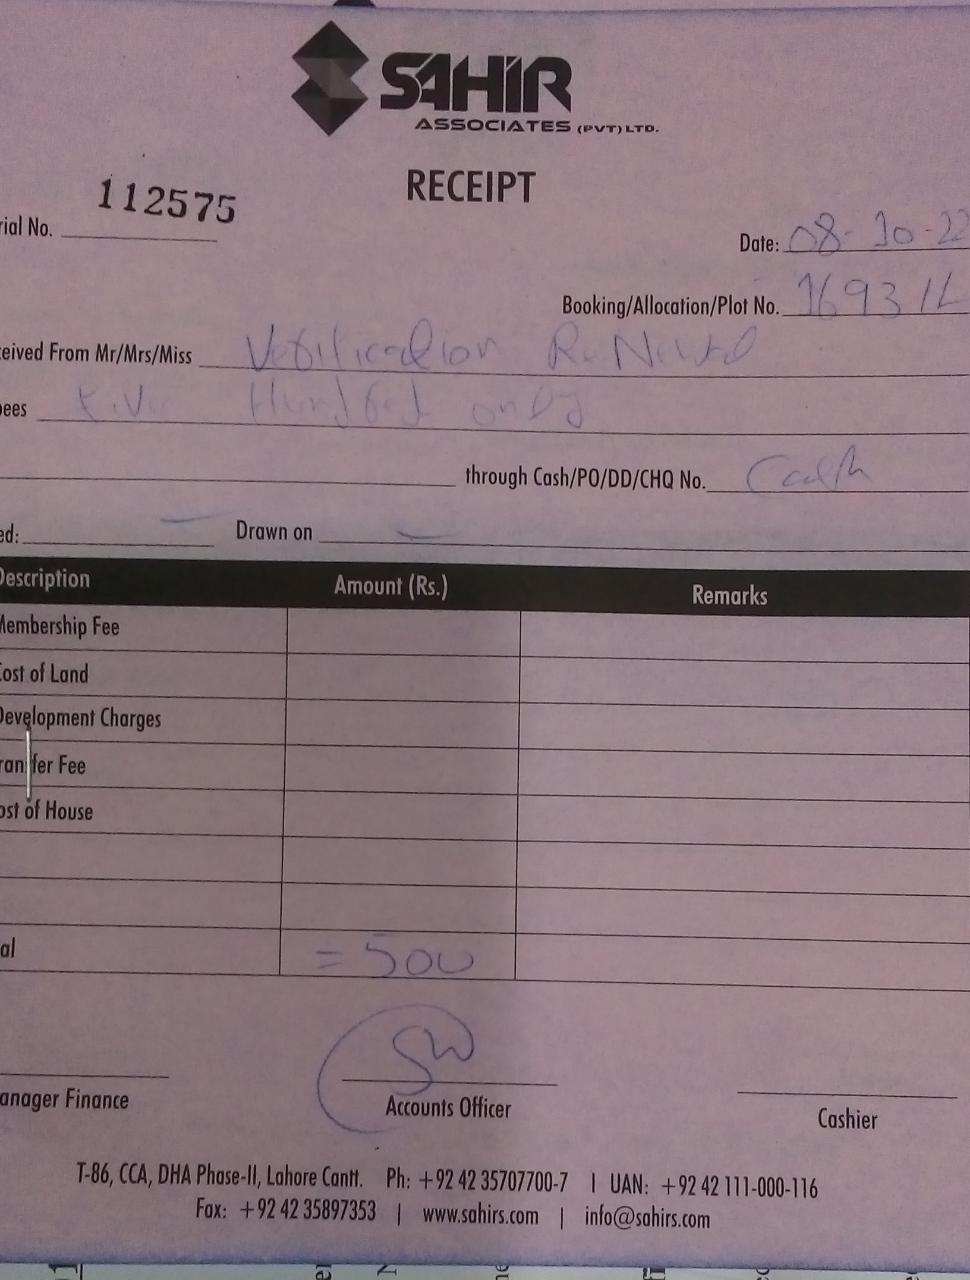 SAHIR
ASSOCIATES (PVT) LTD.
RECEIPT
rial No. 112575
Date: 08-10-22
Booking/Allocation/Plot No. 1693/L
ceived From Mr/Mrs/Miss Verification ReNewal
pees Five Hundred only
through Cash/PO/DD/CHQ No. Cash
ed: Drawn on
Description Amount (Rs.) Remarks
Membership Fee
Cost of Land
Development Charges
ransfer Fee
ost of House
al = 500
anager Finance Accounts Officer Cashier
T-86, CCA, DHA Phase-II, Lahore Cantt. Ph: +92 42 35707700-7 | UAN: +92 42 111-000-116
Fax: +92 42 35897353 | www.sahirs.com | info@sahirs.com